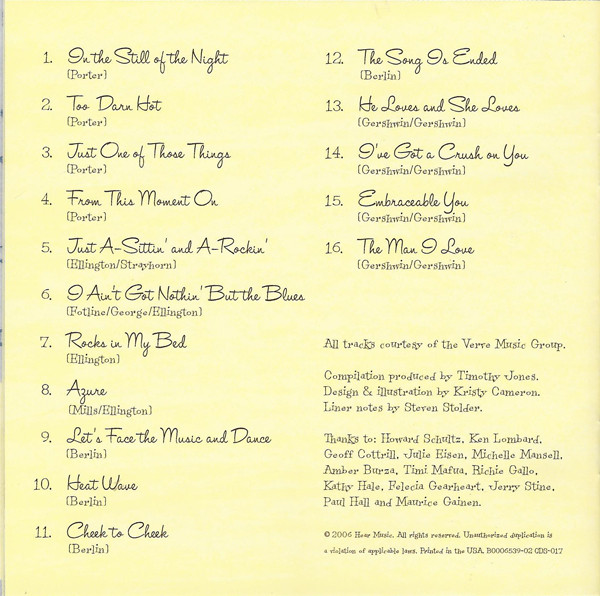 1. In the Still of the Night
(Porter)
2. Too Darn Hot
(Porter)
3. Just One of Those Things
(Porter)
4. From This Moment On
(Porter)
5. Just A-Sittin' and A-Rockin'
(Ellington/Strayhorn)
6. I Ain't Got Nothin' But the Blues
(Fotline/George/Ellington)
7. Rocks in My Bed
(Ellington)
8. Azure
(Mills/Ellington)
9. Let's Face the Music and Dance
(Berlin)
10. Heat Wave
(Berlin)
11. Cheek to Cheek
(Berlin)
12. The Song Is Ended
(Berlin)
13. He Loves and She Loves
(Gershwin/Gershwin)
14. I've Got a Crush on You
(Gershwin/Gershwin)
15. Embraceable You
(Gershwin/Gershwin)
16. The Man I Love
(Gershwin/Gershwin)
All tracks courtesy of the Verve Music Group.
Compilation produced by Timothy Jones.
Design & illustration by Kristy Cameron.
Liner notes by Steven Stolder.
Thanks to: Howard Schultz, Ken Lombard,
Geoff Cottrill, Julie Eisen, Michelle Mansell,
Amber Burza, Timi Mafua, Richie Gallo,
Kathy Hale, Felecia Gearheart, Jerry Stine,
Paul Hall and Maurice Gainen.
© 2006 Hear Music. All rights reserved. Unauthorized duplication is
a violation of applicable laws. Printed in the USA. B0006539-02 CDS-017